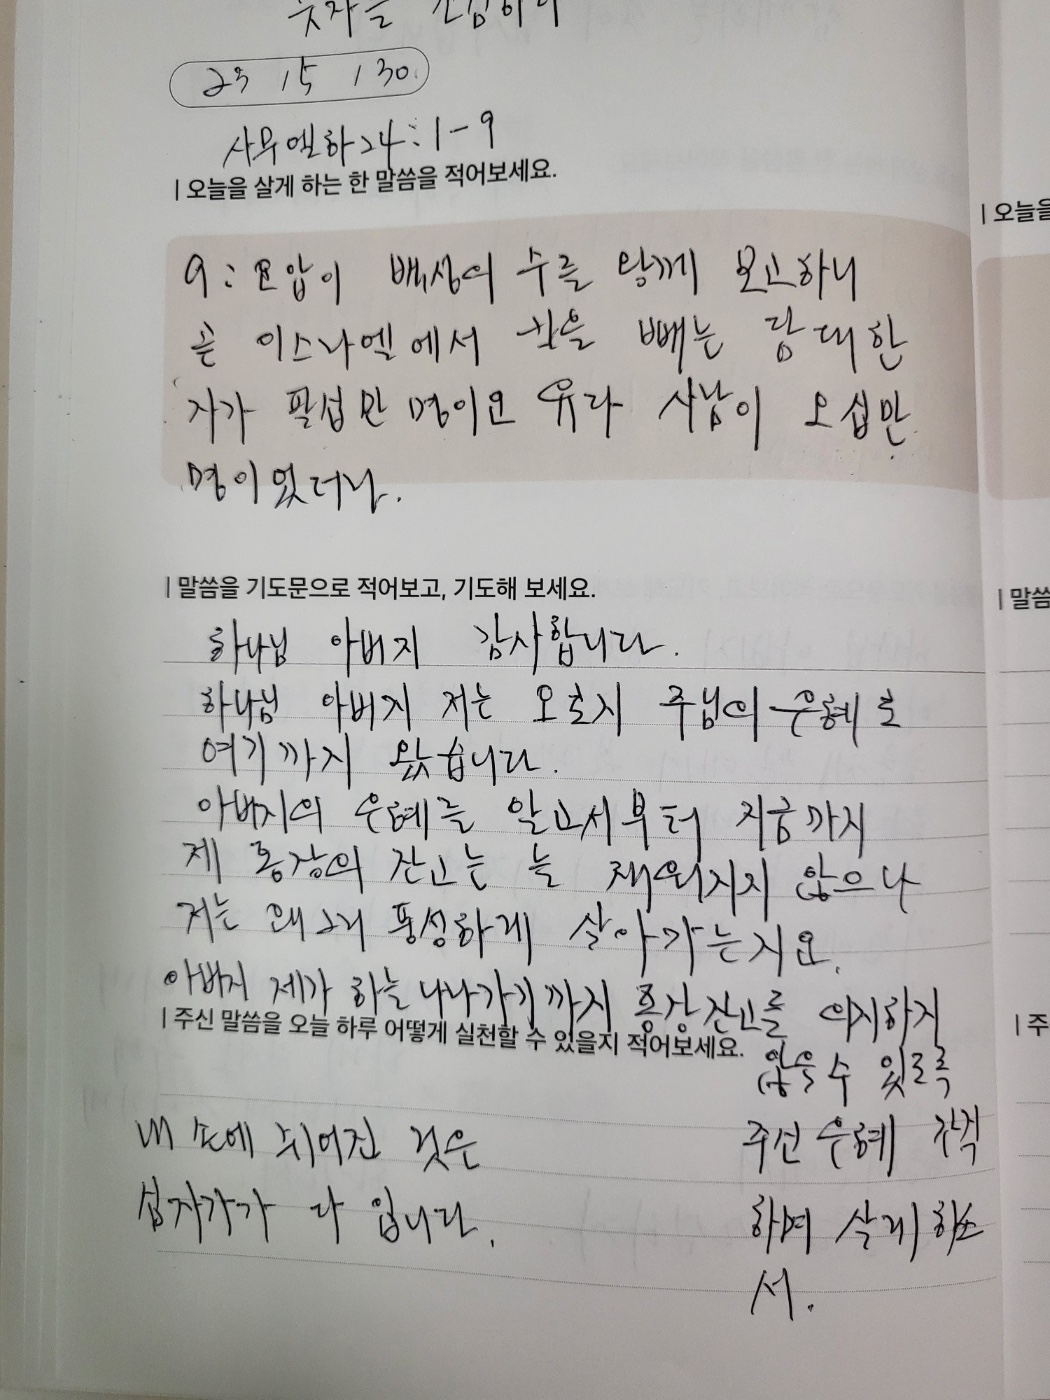 숫자를
23 / 5 / 30.
사무엘하24:1-9
| 오늘을 살게 하는 한 말씀을 적어보세요.
9: 요압이 백성의 수를 왕께 보고하니
곧 이스라엘에서 칼을 빼는 담대한
자가 팔십만 명이요 유다 사람이 오십만
명이었더라.
| 말씀을 기도문으로 적어보고, 기도해 보세요.
하나님 아버지 감사합니다.
하나님 아버지 저는 오로지 주님의 은혜로
여기까지 왔습니다.
아버지의 은혜를 알고서부터 지금까지
제 통장의 잔고는 늘 채워지지 않으나
저는 왜 그리 풍성하게 살아가는지요.
아버지 제가 하늘나라가기까지 통장잔고를 의지하지
않을 수 있도록
주신 은혜 간직
하며 살게 하소
서.
| 주신 말씀을 오늘 하루 어떻게 실천할 수 있을지 적어보세요.
내 손에 쥐어진 것은
십자가가 다 입니다.
| 오늘을
| 말씀
| 주